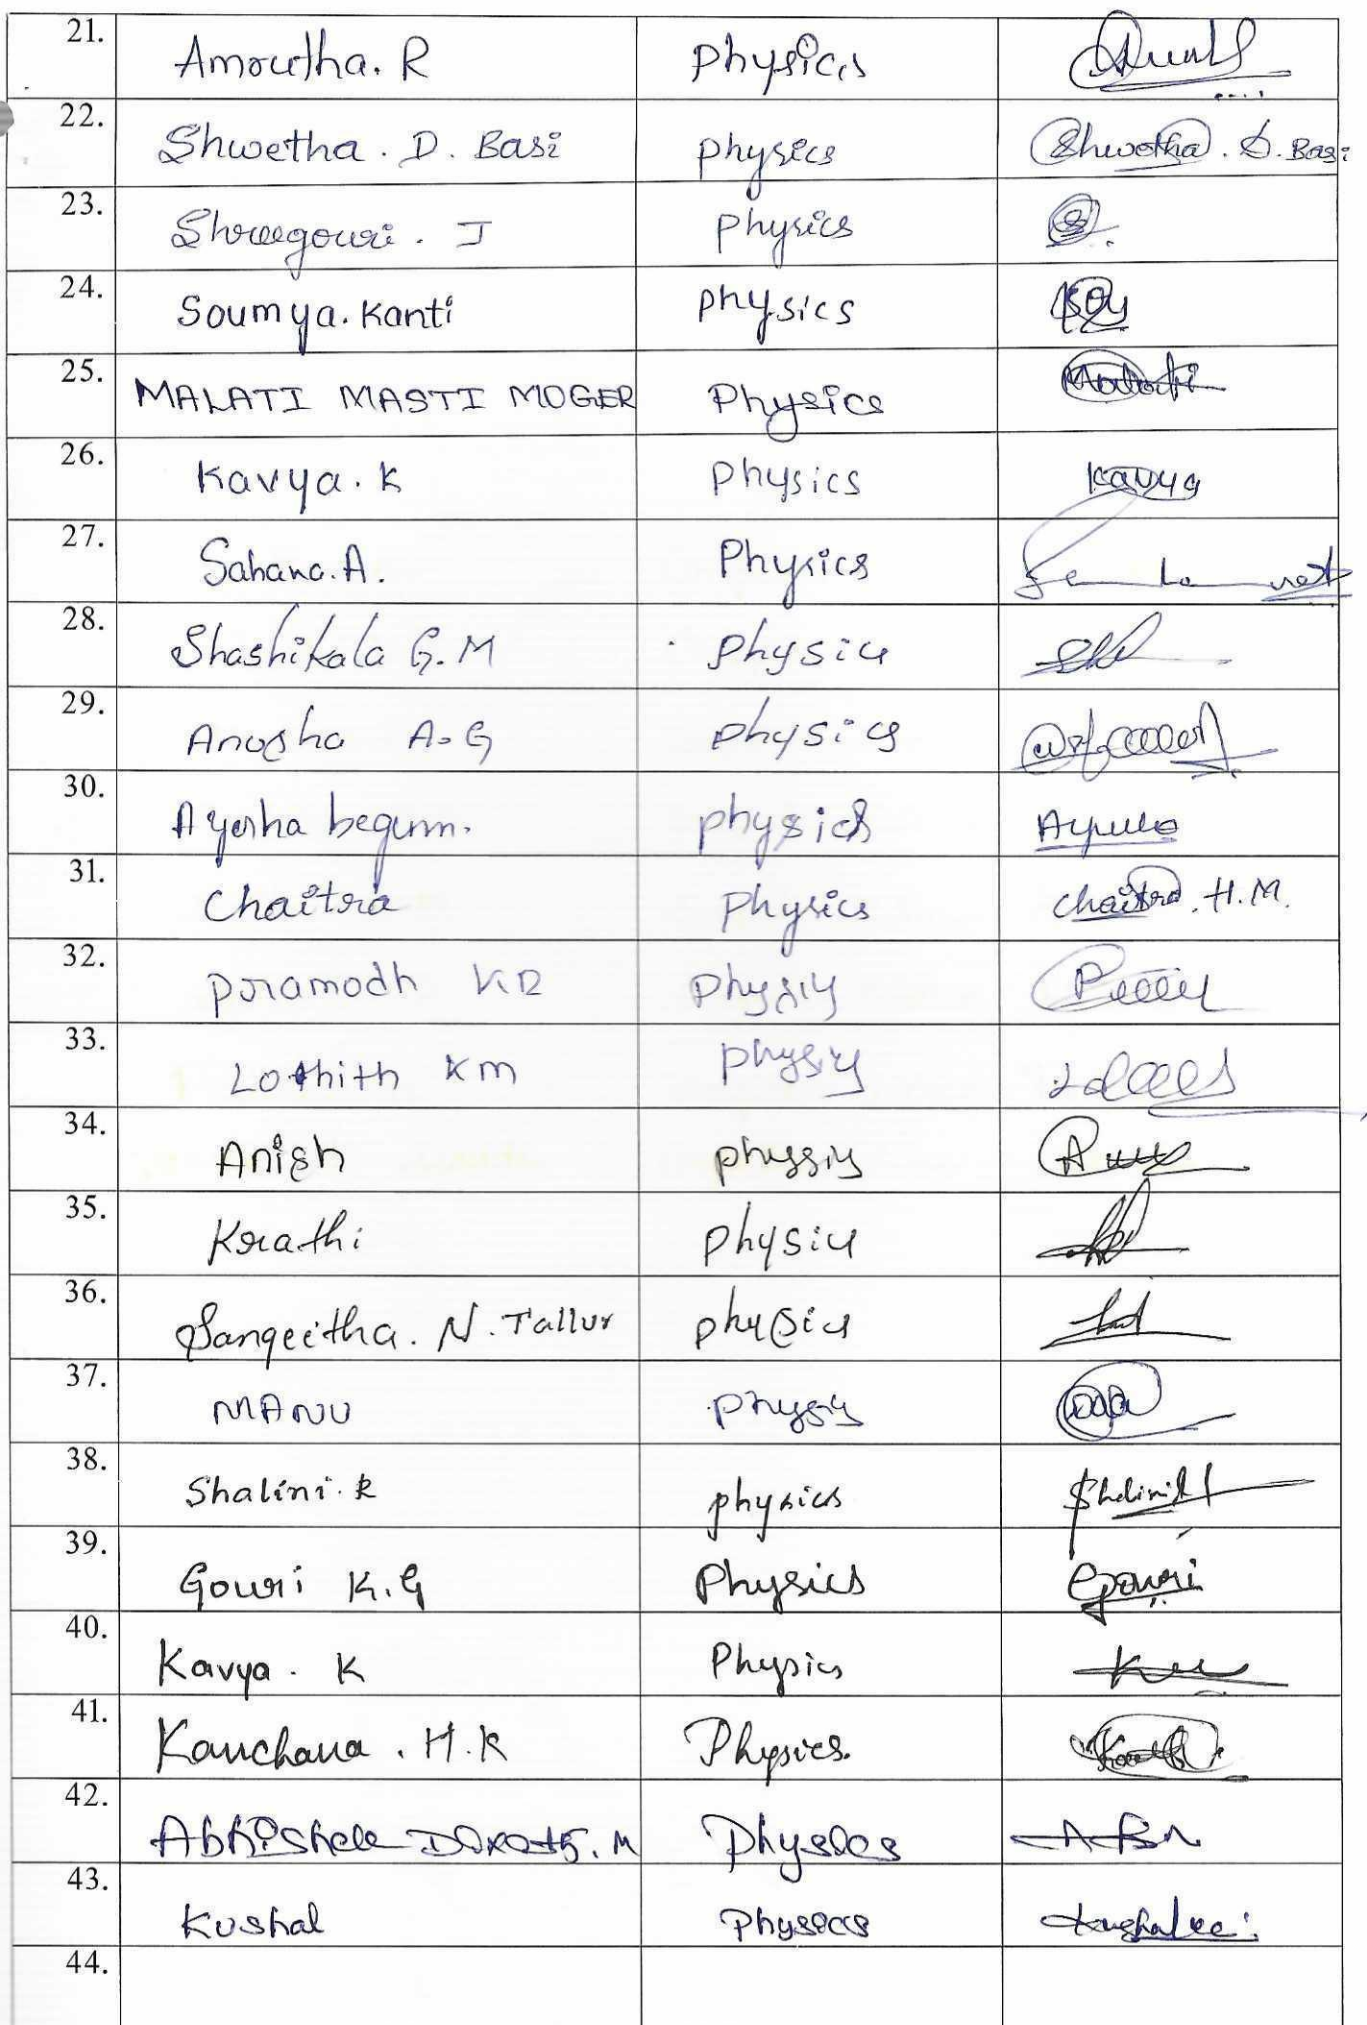 21. Amrutha. R Physics
22. Shwetha. D. Basi Physics Shwetha. D. Basi
23. Shreegouri. J Physics
24. Soumya. Kanti Physics Sou
25. MALATI MASTI MOGER Physics Malati
26. Kavya. K Physics Kavya
27. Sahana. A. Physics
28. Shashikala G. M Physics
29. Anusha A. G Physics
30. Ayesha begum. Physics
31. Chaitra Physics Chaitra. H. M.
32. Pramodh KR Physics
33. Lothith Km Physics
34. Anish Physics
35. Krathi Physics
36. Sangeetha. N. Tallur Physics
37. MANU Physics
38. Shalini. R Physics Shalini
39. Gouri K. G Physics Gouri
40. Kavya. K Physics
41. Kanchana. H. R Physics.
42. Abhishek M Physics
43. Kushal Physics
44.